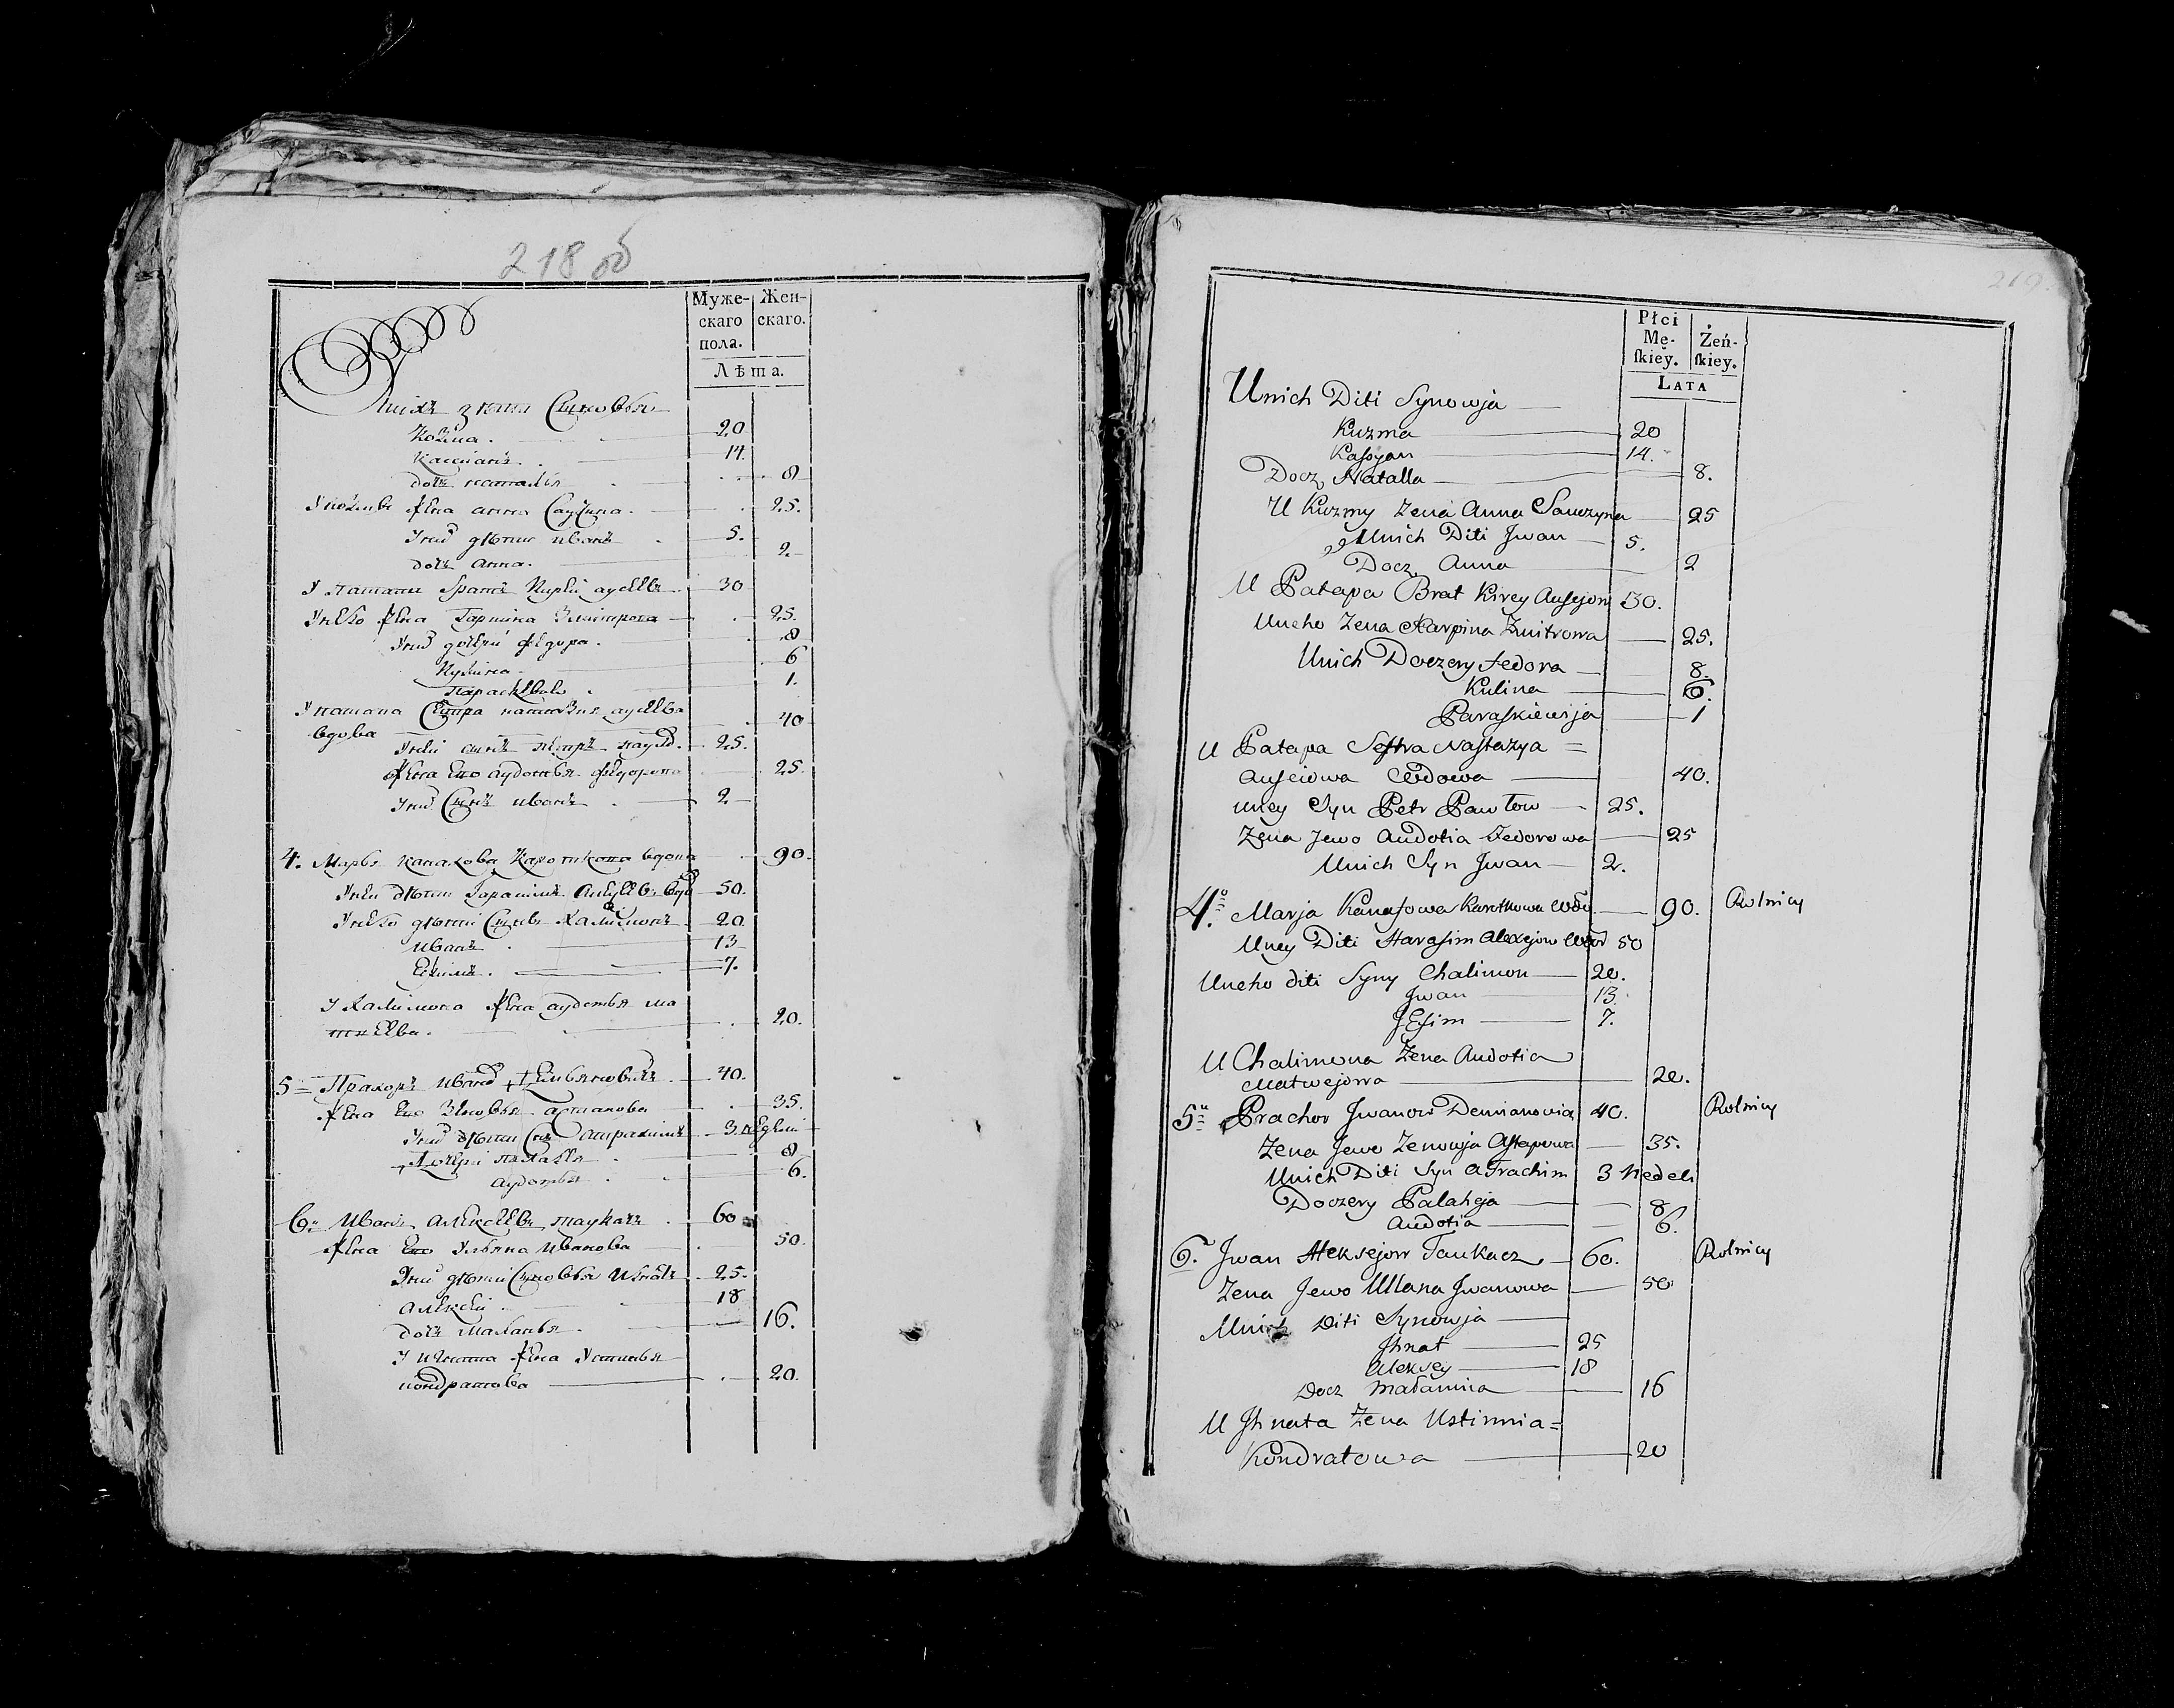 218 об
Муже-
скаго
пола.
Жен-
скаго.
Лѣта.
Унихъ дѣти Сыновья
Козма. 20
Кассианъ. 14.
дочь наталья 8
У козмы жена анна Саучина. 25.
Унихъ дѣти иванъ 5.
дочь анна. 2
У патапа братъ Кирей аусеевъ 30
Унево жена Гарпина Змитрова 25.
Унихъ дочери федора. 8
Кулина. 6
Параскевья 1.
У патапа Сестра настазия аусеева
вдова 40
Уней сынъ петръ павлов. 25.
жена ево аудотья федорова 25.
Унихъ Сынъ иванъ 2
4. Марья канахова Кароткова вдова 90.
Уней дѣти Гарасимъ Алексеевъ вдов 50.
Унево дѣти Сыны Халимонъ 20
иванъ 13
Ефимъ. 7.
У Халимона жена аудотья ма
твеева. 20.
5 Прахоръ иванов Демьяновичъ 40.
жена ево Зеновья астапова 35.
Унихъ дѣти Сынъ Атрахимъ 3 недели
Дочери палагея 8
аудотья 6.
6. Иванъ алексеевъ таукачъ 60
жена ево Ульяна иванова 50.
Унихъ дѣти Сыновья игнатъ 25.
алексей. 18
дочь маланья. 16.
У игната жена Устинья
кондратова 20.
219.
Płci
Mę-
ſkiey.
Żeń-
ſkiey.
LATA
Unich Diti Synowja
Kuzma 20
Kasyan 14.
Docz Natalla 8.
U Kuzmy Zena Anna Sauczyna 25
Unich Diti Jwan 5.
Docz Anna 2
U Patapa Brat Kirey Ausejow 30.
Uneho Zena Harpina Zmitrowa 25.
Unich Doczery Fedora 8.
Kulina 6.
Paraskiewija 1
U Patapa Sestra Nastazya =
Auseiowa Wdowa 40.
uney Syn Petr Pawłow 25.
Zena Jewo Audotia Fedorowa 25
Unich Syn Jwan 2.
4. Marja Kanasowa Karotkowa Wdo 90. Rolnicy
Uney Diti Harasim Alexejow Wdow 50
Uneho diti Syny Chalimon 20.
Jwan 13.
JEfim 7.
U Chalimona Zena Audotia
Matwejowa 20.
5 Prachor Jwanow Demianowia 40. Rolnicy
Zena Jewo Zenowja Astapowa 35.
Unich Diti Syn Atrachim 3 Nedeli
Doczery Palaheja 8
Audotia 6.
6. Jwan Aleksejow Taukacz 60. Rolnicy
Zena Jewo Ullana Jwanowa 50
Unich Diti Synowja
Jhnat 25
Aleksey 18
Docz Małannia 16
U Jhnata Zena Ustinnia =
Kondratowa 20